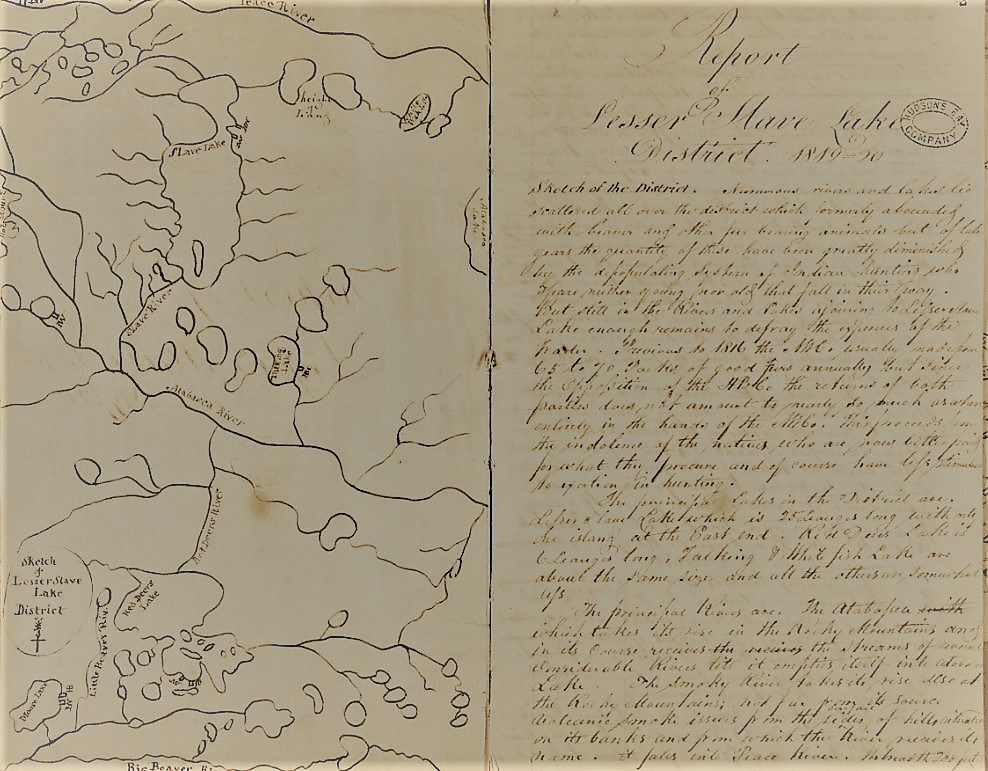 Peace River
Height
of
Land
Slave Lake
Slave River
Atabasca River
Red Deers River
Red Deers
Lake
Little Beaver River
Moose Lake
Sketch
of
Lesser Slave
Lake
District
Big Beaver
Report
of
Lesser Slave Lake
District. 1819-20
HUDSONS BAY
COMPANY
Sketch of the District. Numerous rivers and Lakes lie
scattered all over the district which formerly abounded
with beaver and other fur bearing animals but of late
years the quantity of these have been greatly diminished
by the depopulating system of Indian hunting who
spare neither young nor old that fall in their way.
But still in the Rivers and Lakes adjoining to Lesser Slave
Lake enough remains to defray the expences of the
trader. Previous to 1816 the NWCo. usually made from
65 to 70 Packs of good furs annually but since
the Opposition of the HBCo the returns of both
parties does not amount to nearly so much as when
entirely in the hands of the NWCo. This proceeds from
the indolence of the natives who are now better paid
for what they procure and of course have less stimulus
to exertion in hunting.
The principal Lakes in the District are.
Lesser Slave Lake which is 25 Leagues long with
one island at the East end. Red Deers Lake is
6 Leagues long, Jalking & White fish Lake are
about the same size and all the others are somewhat
less
The principal Rivers are. The Atabasca with
which takes its rise in the Rocky Mountains and
in its Course receives the Streams of several
Considerable Rivers till it empties itself into
Lake. The Smoky River takes its rise also at
the Rocky Mountains; not far from its source
Volcanic smoke issues from the sides of hills situated
on its banks and from which the River receives its
name. it falls into Peace River. Its breadth 200